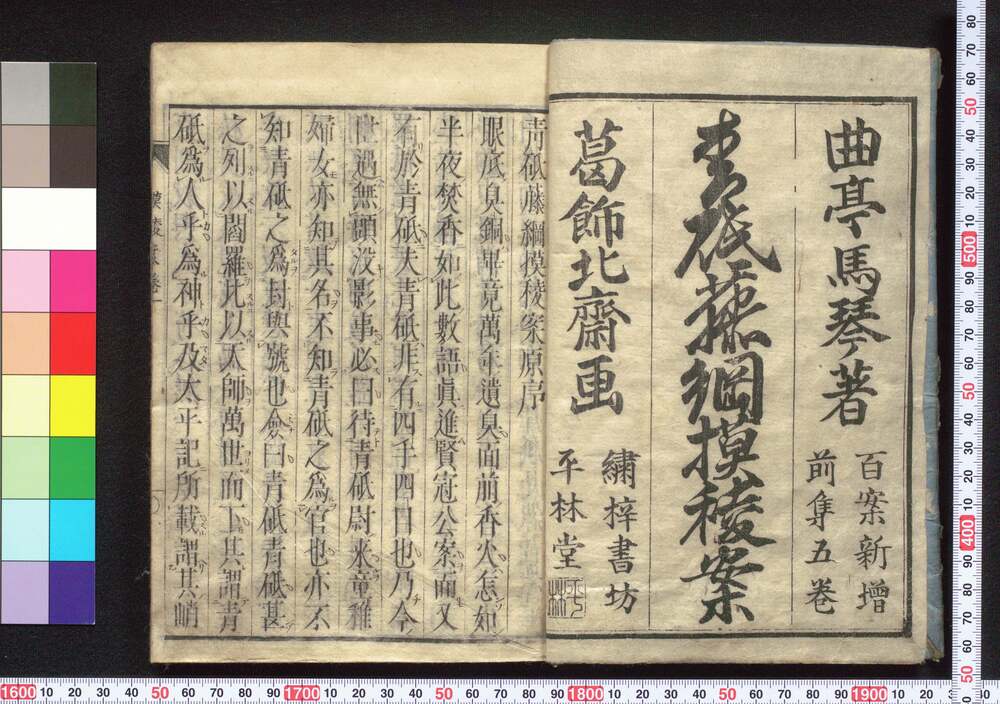 曲亭馬琴著
百案新增
前集五巻
青砥藤綱摸稜案
葛飾北齋画
繍梓書坊
平林堂
青砥藤綱摸稜案原序
眼底臭銅畢竟萬年遺臭面前香火怎如
半夜焚香如此數語眞進賢冠公案而又
有於青砥夫青砥非有四手四目也乃今
世遇無頭没影事必曰待青砥尉来童稚
婦女亦知其名不知青砥之爲官也亦不
知青砥之爲封與號也僉曰青砥青砥甚
之列以閻羅比以太師萬世而下其謂青
砥爲人乎爲神乎及太平記所載謂其峭
1600 10 20 30 40 50 60 70 80 90 1700 10 20 30 40 50 60 70 80 90 1800 10 20 30 40 50 60 70 80 90 1900 10 20 30
80 70 60 50 40 30 20 10 500 90 80 70 60 50 40 30 20 10 400 90 80 70 60 50